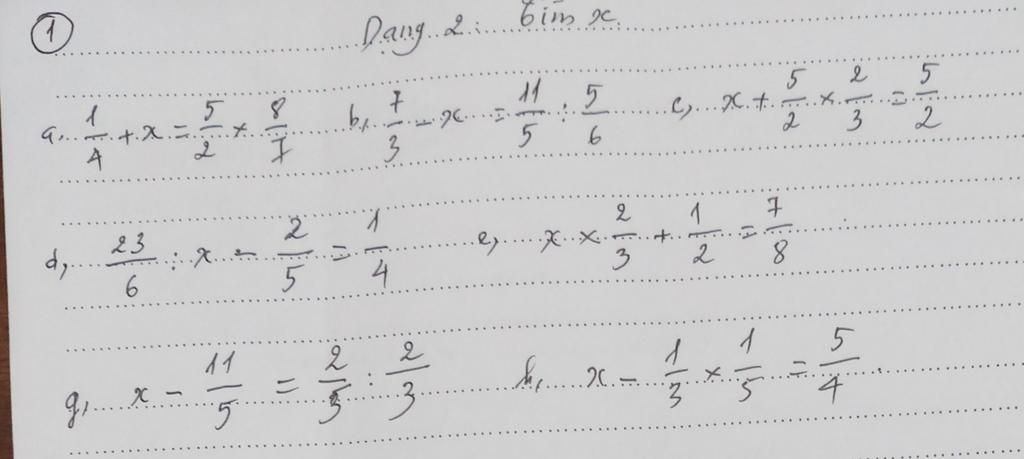 ① Dạng 2: tìm x.
a, 1/4 + x = 5/2 × 8/7 b, 7/3 - x = 11/5 : 5/6 c, x + 5/2 × 2/3 = 5/2
d, 23/6 : x - 2/5 = 1/4 e, x × 2/3 + 1/2 = 7/8
g, x - 11/5 = 2/3 : 2/3 h, x - 1/3 × 1/5 = 5/4.